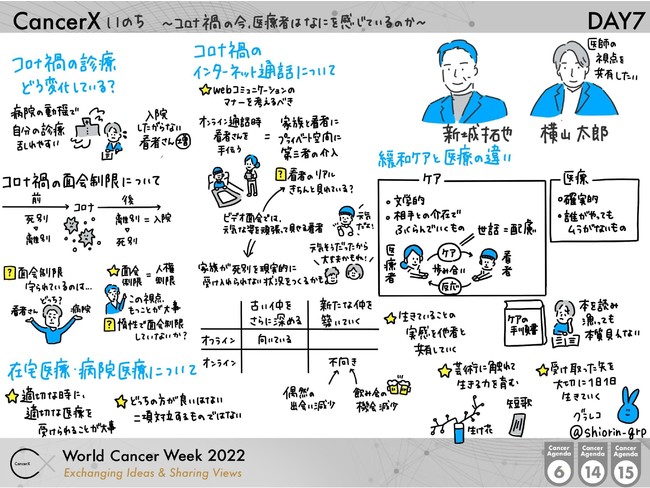 CancerX いのち ～コロナ禍の今、医療者はなにを感じているのか～
DAY7
コロナ禍の診療
どう変化している？
病院の勤怠で
自分の診療
乱れやすい
入院
したがらない
患者さん増
コロナ禍の面会制限について
前
コロナ
後
死別
↓
離別
離別＝入院
↓
死別
？面会制限
守られているのは…
どっち？
患者さん
病院
面会制限＝人権制限
この視点、
もつことが大事
？惰性で面会制限
していないか？
在宅医療・病院医療について
適切な時に、
適切な医療を
受けられることが大事
どっちの方が良いはない
二項対立するものではない
コロナ禍の
インターネット通話について
webコミュニケーションの
マナーを考えるべき
オンライン通話時
患者さんを
手伝う
＝
家族と患者に
プライベート空間に
第三者の介入
？患者のリアル
きちんと見れている？
ビデオ面会では、
元気な姿を頑張って見せる患者
元気だよ！
元気そうだったから
大丈夫かもね！
家族が死別を現実的に
受け入れられない状況をつくるかも
古い仲を
さらに深める
新たな仲を
築いていく
オフライン
向いている
オンライン
不向き
偶然の
出会い減少
飲み会の
機会減少
新城拓也
横山太郎
医師の
視点を
共有したい
緩和ケアと医療の違い
ケア
・文学的
・相手との介在で
ふくらんでいくもの
世話＝配慮
医療者
ケア
歩み合い
反応
患者
医療
・確実的
・誰がやっても
ムラがないもの
生きていることの
実感を他者と
共有していく
ケアの
手引書
本を読み
漁っても
本質見えない
芸術に触れて
生きる力を育む
生け花
短歌
受け取った矢を
大切に1日1日
生きていく
グラレコ
@shiorin_grp
CancerX
World Cancer Week 2022
Exchanging Ideas & Sharing Views
Cancer
Agenda
6
Cancer
Agenda
14
Cancer
Agenda
15